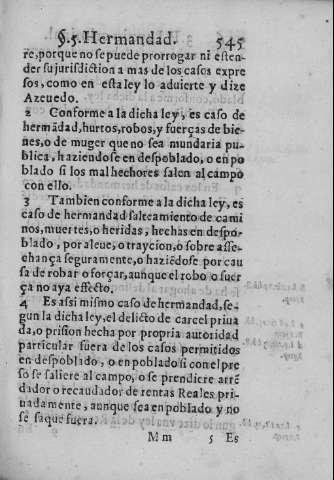 §. 5. Hermandad. 545
re, porque no se puede prorrogar ni esten-
der su jurisdiction a mas de los casos expre
sos, como en esta ley lo aduierte y dize
Azeuedo.
2 Conforme a la dicha ley, es caso de
hermãdad, hurtos, robos, y fuerças de bie-
nes, o de muger que no sea mundaria pu-
blica, haziendose en despoblado, o en po
blado si los malhechores salen al campo
con ello.
3 Tambien conforme a la dicha ley, es
caso de hermandad salteamiento de cami
nos, muertes, o heridas, hechas en despo-
blado, por aleue, o traycion, o sobre asse-
chança seguramente, o haziẽdose por cau
sa de robar o forçar, aunque el robo o fuer
ça no aya effecto.
4 Es assi mismo caso de hermandad, se-
gun la dicha ley, el delicto de carcel priua
da, o prision hecha por propria autoridad
particular fuera de los casos permitidos
en despoblado, o en poblado si con el pre-
so se saliere al campo, o se prendiere arrẽ
dador o recaudador de rentas Reales pri-
uadamente, aunque sea en poblado y no
se saque fuera.
Mm 5 Es